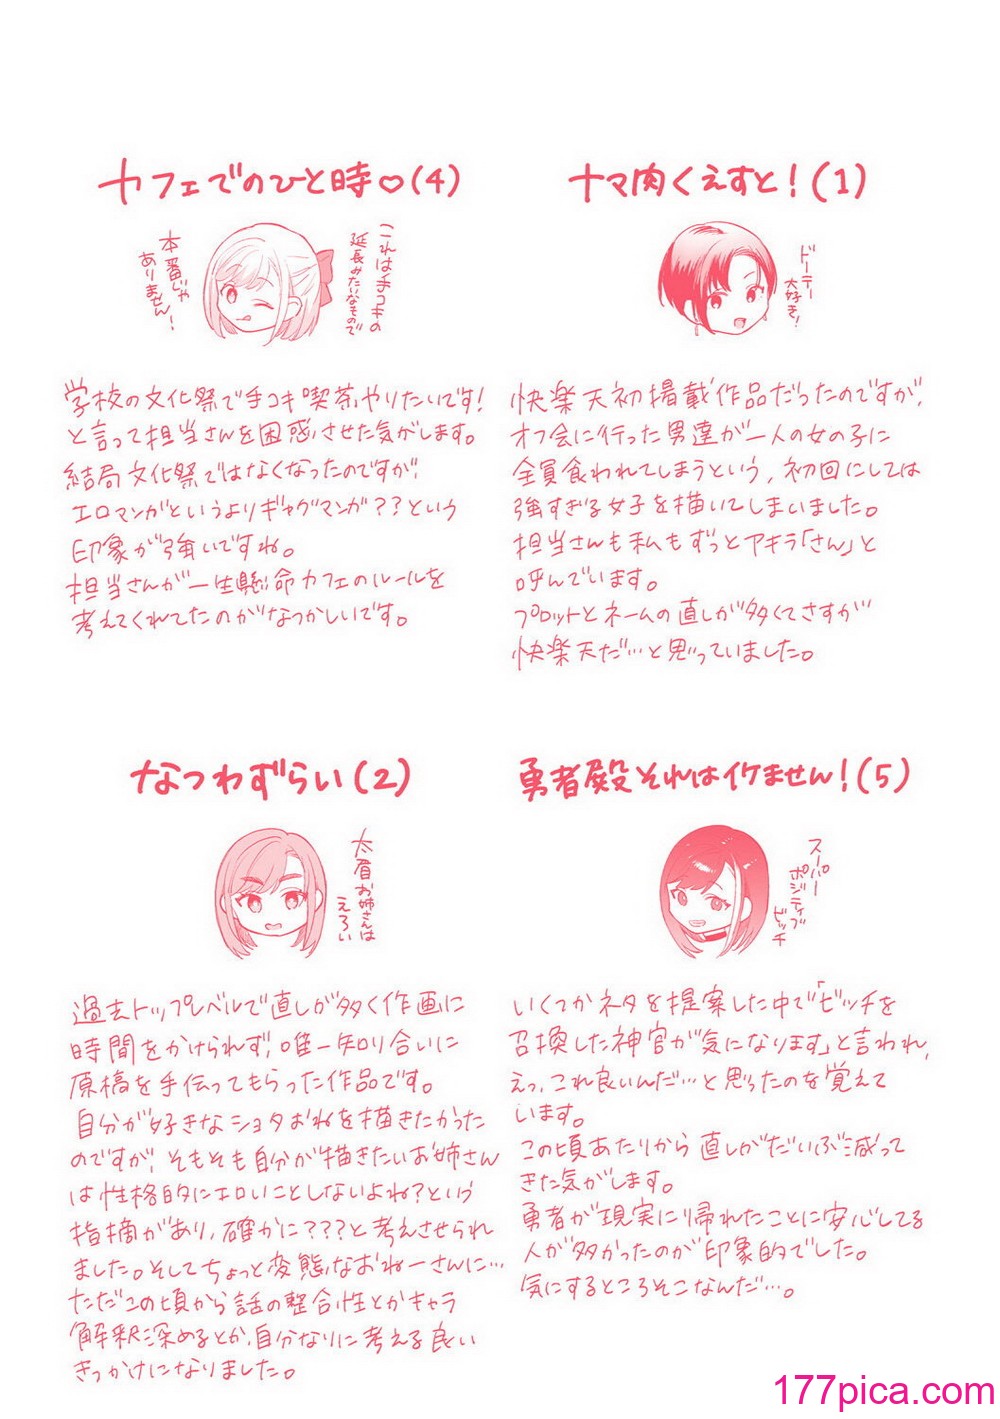 ナマ肉くえすと！(1)
ドーテー
大好き！
快楽天初掲載作品だったのですが、
オフ会に行った男達が一人の女の子に
全員食われてしまうという、初回にしては
強すぎる女子を描いてしまいました。
担当さんも私もずっとアキラ「さん」と
呼んでいます。
プロットとネームの直しが多くてさすが
快楽天だ…と思っていました。
カフェでのひと時♡(4)
これは手コキの
延長みたいなもので
本番じゃ
ありません！
学校の文化祭で手コキ喫茶やりたいです！
と言って担当さんを困惑させた気がします。
結局文化祭ではなくなったのですが、
エロマンガというよりギャグマンガ？？という
印象が強いですね。
担当さんが一生懸命カフェのルールを
考えてくれてたのがなつかしいです。
勇者殿それはイケません！(5)
スーパー
ポジティブ
ビッチ
いくつかネタを提案した中で「ビッチを
召喚した神官が気になります」と言われ、
えっ、これ良いんだ…と思ったのを覚えて
います。
この頃あたりから直しがだいぶ減って
きた気がします。
勇者が現実に帰れたことに安心してる
人が多かったのが印象的でした。
気にするところそこなんだ…。
なつわずらい(2)
太眉お姉さんは
えろい
過去トップレベルで直しが多く作画に
時間をかけられず、唯一知り合いに
原稿を手伝ってもらった作品です。
自分が好きなショタおねを描きたかった
のですが、そもそも自分が描きたいお姉さん
は性格的にエロいことしないよね？という
指摘があり、確かに？？？と考えさせられ
ました。そしてちょっと変態なおねーさんに…
ただこの頃から話の整合性とかキャラ
解釈深めるとか、自分なりに考える良い
きっかけになりました。
177pica.com